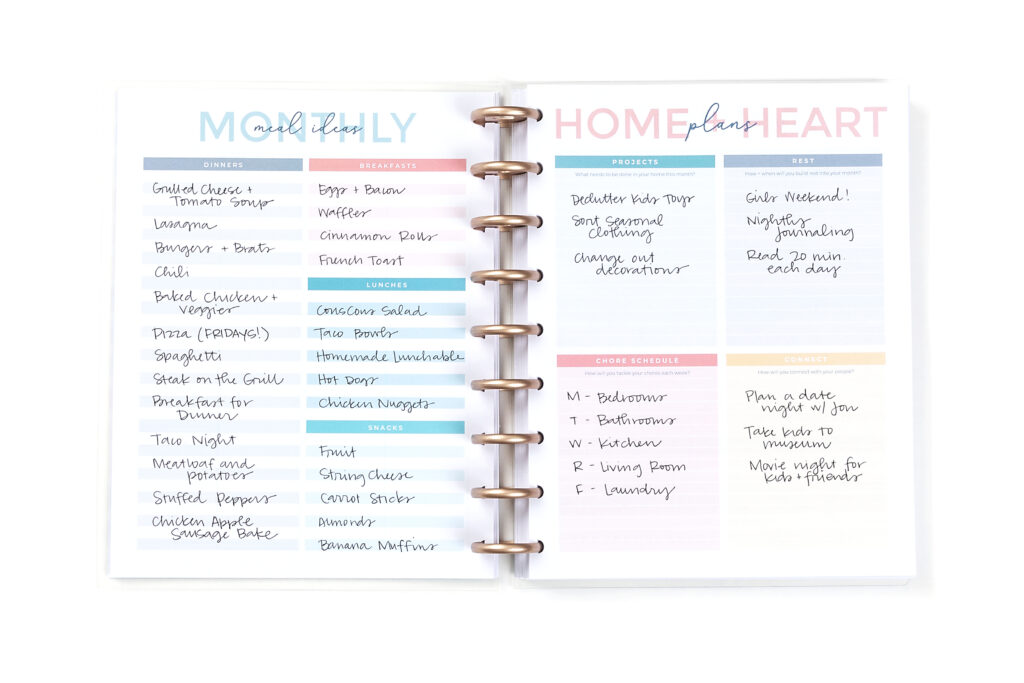 MONTHLY
meal ideas
DINNERS
Grilled Cheese +
Tomato Soup
Lasagna
Burgers + Brats
Chili
Baked Chicken +
veggies
Pizza (FRIDAYS!)
Spaghetti
Steak on the Grill
Breakfast for
Dinner
Taco Night
Meatloaf and
potatoes
Stuffed Peppers
Chicken Apple
Sausage Bake
BREAKFASTS
Eggs + Bacon
Waffles
Cinnamon Rolls
French Toast
LUNCHES
Couscous Salad
Taco Bowls
Homemade Lunchable
Hot Dogs
Chicken Nuggets
SNACKS
Fruit
String Cheese
Carrot Sticks
Almonds
Banana Muffins
HOME + HEART
plans
PROJECTS
What needs to be done in your home this month?
Declutter Kids Toys
Sort Seasonal
Clothing
Change out
decorations
REST
How + when will you build rest into your month?
Girls Weekend!
Nightly
Journaling
Read 20 min.
each day
CHORE SCHEDULE
How will you tackle your chores each week?
M - Bedrooms
T - Bathrooms
W - Kitchen
R - Living Room
F - Laundry
CONNECT
How will you connect with your people?
Plan a date
night w/ Jon
Take kids to
museum
Movie night for
kids + friends